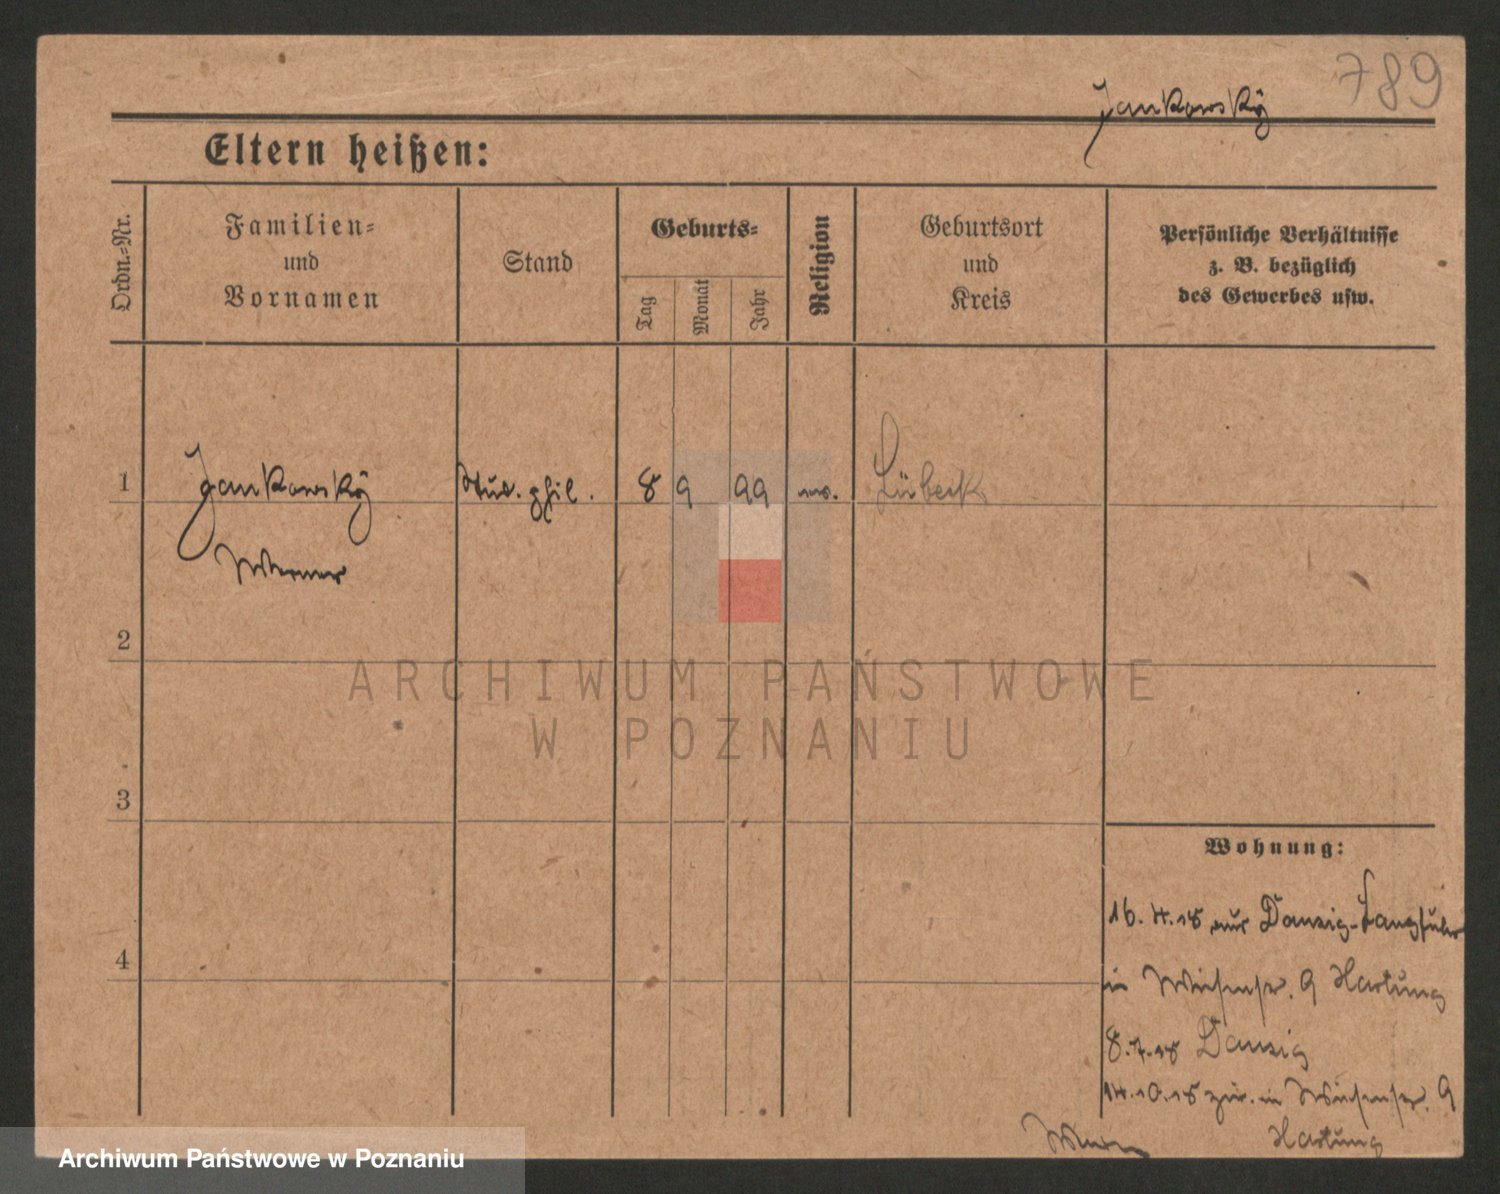 789
Jankowsky
Eltern heißen:
Ordn.-Nr.
Familien-
und
Vornamen
Stand
Geburts-
Tag
Monat
Jahr
Religion
Geburtsort
und
Kreis
Persönliche Verhältnisse
z. B. bezüglich
des Gewerbes usw.
1 Jankowsky stud. phil. 8 9 99 ev. Lübeck
Werner
2
3
4
Wohnung:
16. 4. 18 aus Danzig-Langfuhr
in Wiesenstr. 9 Hartung
8. 7. 18 Danzig
14. 10. 18 zur. in Wiesenstr. 9
Hartung
Werner
ARCHIWUM PAŃSTWOWE
W POZNANIU
Archiwum Państwowe w Poznaniu